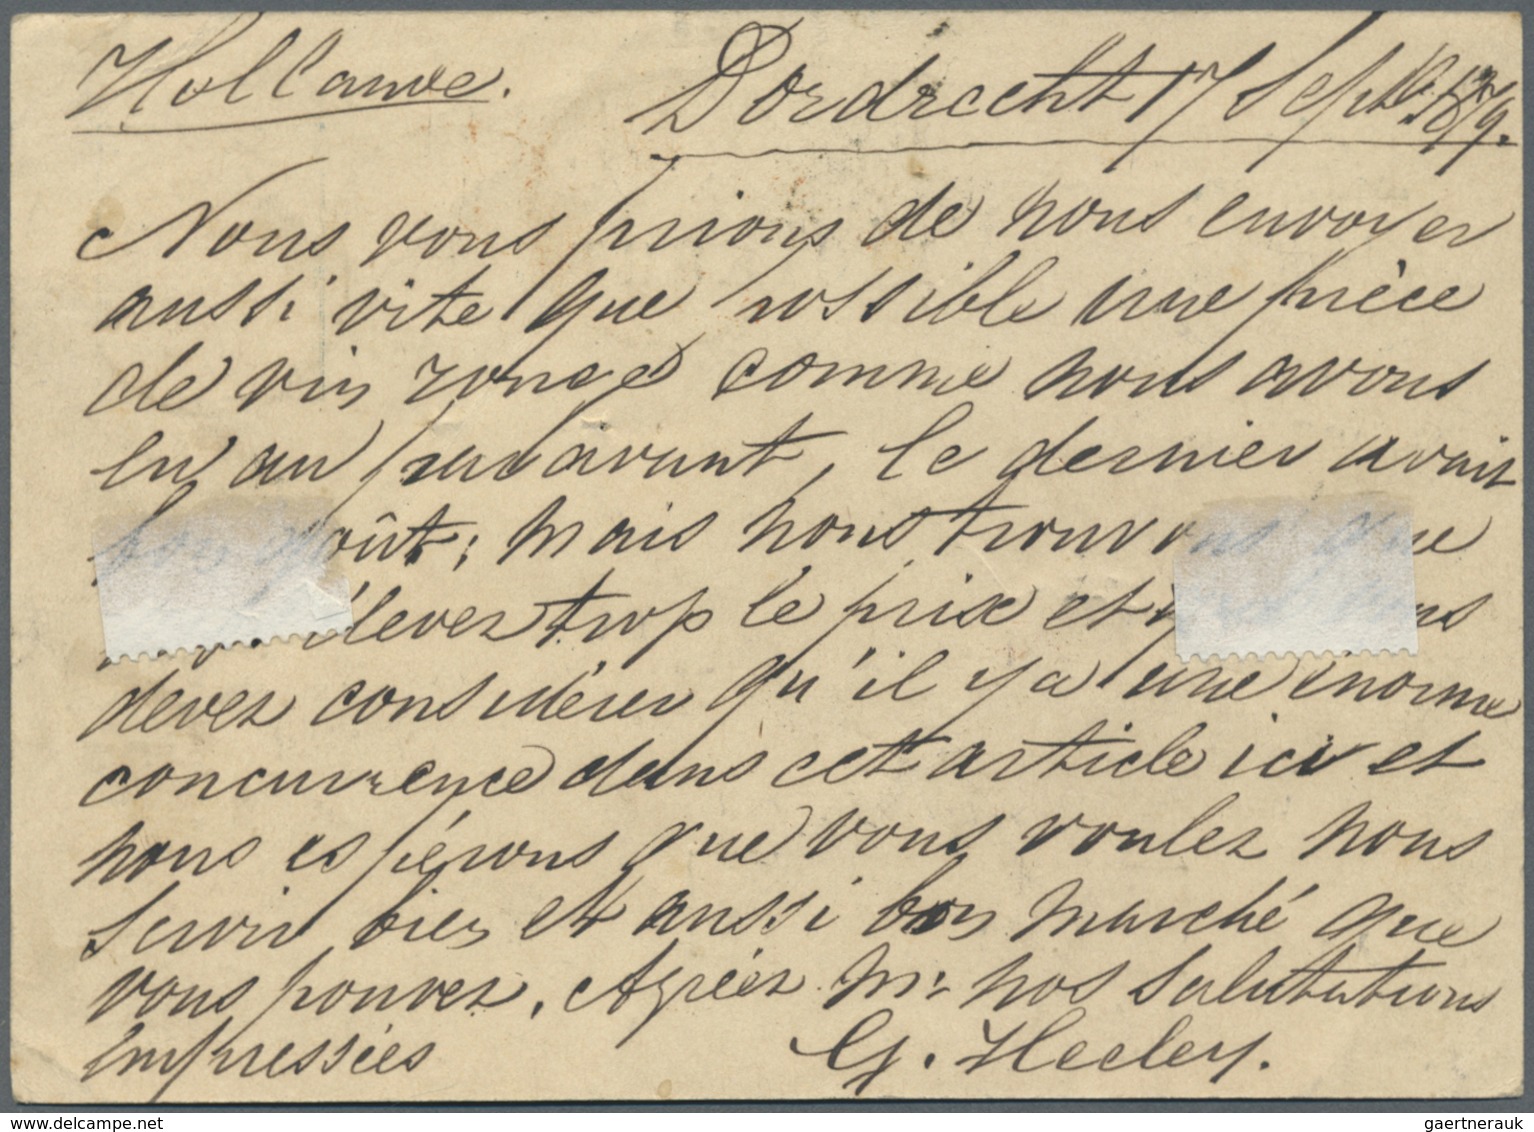 Hollande.
Dordrecht 17 Sept. 1879.
Nous vous prions de nous envoyer
aussi vite que possible une pièce
de vin rouge comme nous avons
eu au paravant, le dernier avait
bon goût; mais nous trouvons que
élevez trop le prix et
devez considérer qu'il y a une énorme
concurrence dans cet article ici et
nous espérons que vous voulez nous
servir bien et aussi bon marché que
vous pouvez. Agréez Mr: nos salutations
empressées
G. Hecley.
gaertnerauk @ delcampe.net